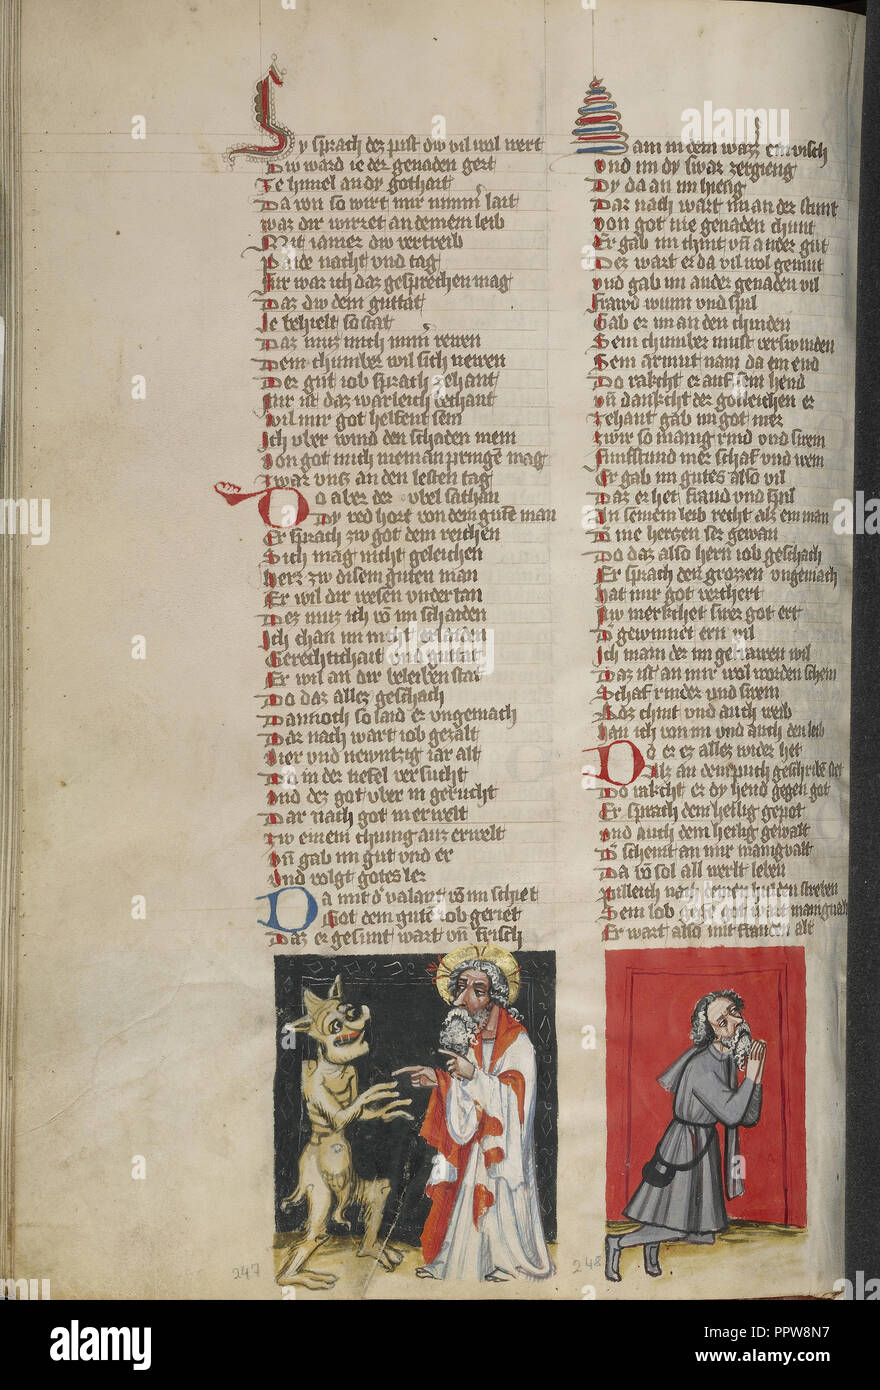 Sy sprach der pist dw vil wol wert
Dw ward ie der genaden gert
Ze himel an dy gothait
Da von so wirt mir nimmer lait
waz dir wirret an deinem leib
Mit iamer dw vertreib
Paide nacht und tag
Fur war ich daz gesprechen mag
Daz dw dem guttat
Ie behielt so stat
Daz muz mich immer rewen
Dein chumber wil sich newen
Der gut iob sprach zehant
Fur ist daz warleich bechant
wil mir got helfent sein
Ich uber wind den schaden mein
Von got mich nieman pringen mag
zwar untz an den lesten tag
Do aber der ubel sathan
Dy red hort von dem guten man
Er sprach zw got dem reichen
Sich mag nicht geleichen
herz zw disem guten man
Er wil dir wesen undertan
Dez muz ich von im schaiden
Ich chan im nicht erlaiden
Gerechtichait und guttat
Er wil an dir beleiben stat
Do daz allez geschach
Dannoch so laid er ungemach
Dar nach wart iob gezalt
vier und newntzig iar alt
Da in der tiefel versucht
Und dez got uber in gerucht
Dar nach got in erwelt
zw einem chunig auz erwelt
Un gab im gut und er
Und volgt gotes ler
Da mit der valant von im schiet
Got dem guten iob geriet
Daz er gesunt wart un frisch
Sam in dem wazzer ein visch
und im dy swar zergieng
Dy da an im hieng
Dar nach wart im an der stunt
von got nie genaden chunt
Er gab im chint un ander gut
Dez wart er da vil wol gemut
und gab im ander genaden vil
frawd wunn und spil
Gab er im an den chinden
Sein chumber must verswinden
Sein armut nam da ein end
Do rakcht er auf sein hend
un dankcht der gotleichen er
zehant gab im got mer
zwir so manig rind und swein
Funfstund mer schaf und
Er gab im gutes also vil
Daz er het fraud und spil
In seinem leib recht alz ein man
Der nie herzen ser gewan
Do daz also hern iob geschach
Er sprach den grozzen ungemach
hat mir got verchert
Nw merkchet swer got ert
Der gewinnet ern vil
Ich main der im getrawen wil
Daz ist an mir wol worden schein
Schaf rinder und swein
Dar chint und auch weib
han ich von im und auch den leib
Do er ez allez wider het
Alz an dem puch geschriben stet
Do rakcht er dy hend gegen got
Er sprach dem heilig gepot
und auch dem heilig gewalt
Der scheint an mir manigvalt
Da von sol all werlt leben
Pilleich nach seinen hulden streben
Sein lob got wart manigvalt
Er wart also mit frauden alt
247
248
alamy
Image ID: PPW8N7
www.alamy.com